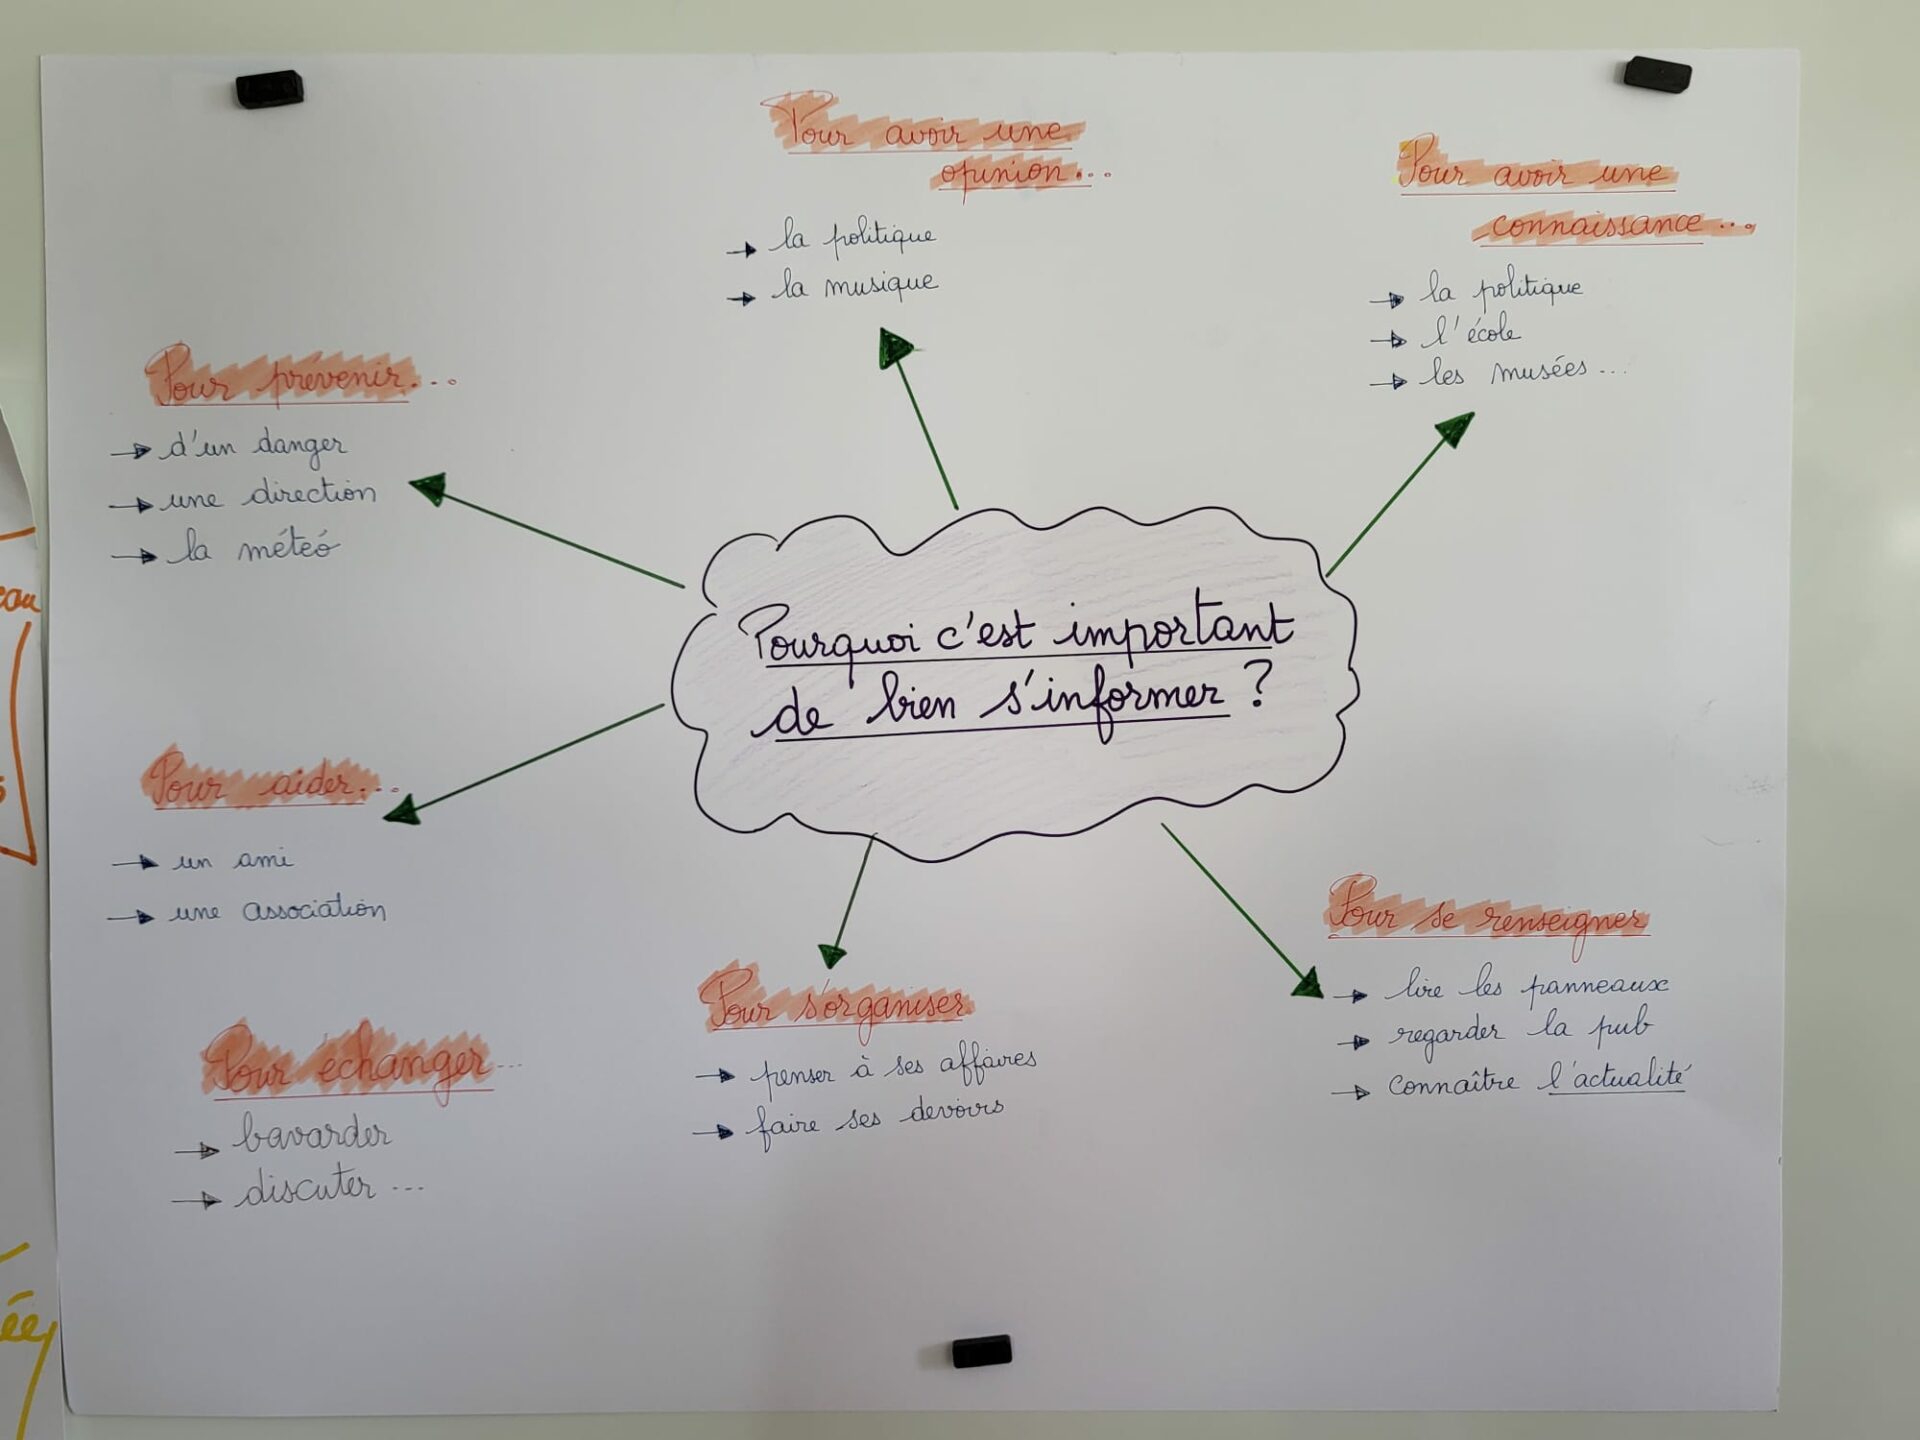 Pour avoir une
opinion...
→ la politique
→ la musique
Pour avoir une
connaissance...
→ la politique
→ l'école
→ les musées...
Pour prévenir...
→ d'un danger
→ une direction
→ la météo
Pourquoi c'est important
de bien s'informer ?
Pour aider...
→ un ami
→ une association
Pour se renseigner
→ lire les panneaux
→ regarder la pub
→ connaître l'actualité
Pour s'organiser
→ penser à ses affaires
→ faire ses devoirs
Pour échanger...
→ bavarder
→ discuter...